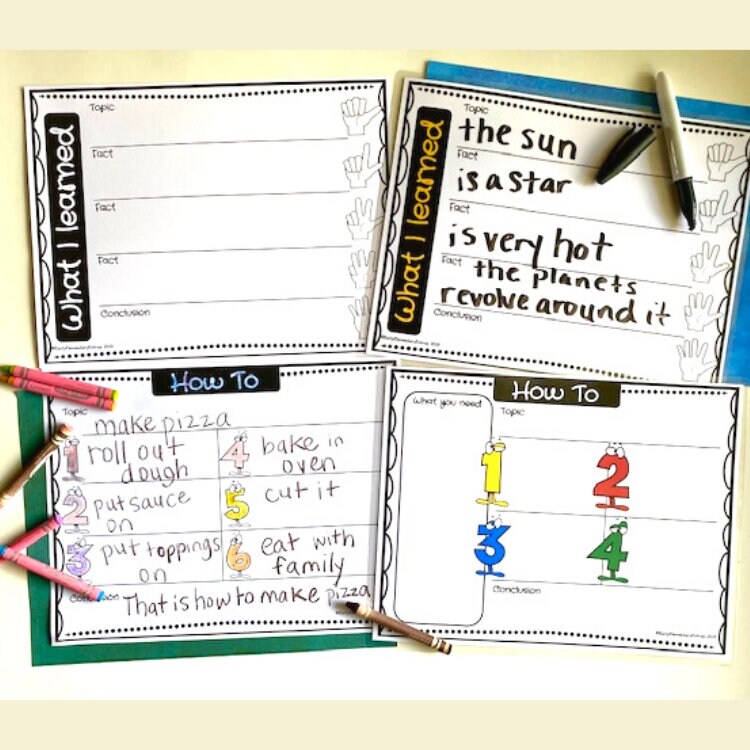 What I learned
Topic
Fact
Fact
Fact
Conclusion
What I learned
Topic
the sun
Fact
is a star
Fact
is very hot
Fact
the planets
revolve around it
Conclusion
How To
Topic
make pizza
1 roll out
dough
2 put sauce
on
3 put toppings
on
4 bake in
oven
5 cut it
6 eat with
family
Conclusion
That is how to make pizza
How To
What you need
Topic
1
2
3
4
Conclusion